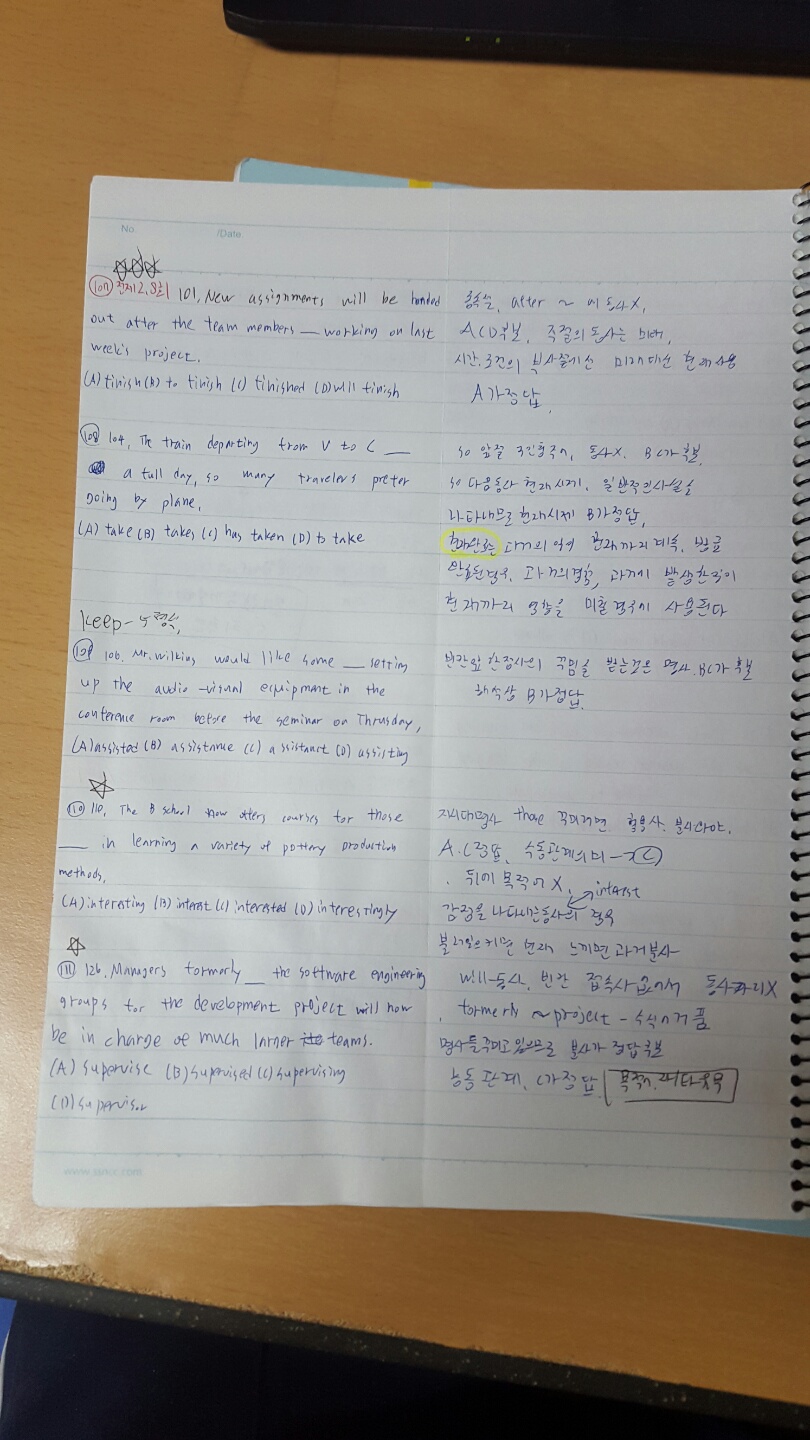 No.
/Date.
107 101, New assignments will be handed
out after the team members __ working on last
week's project.
(A) finish (B) to finish (C) finished (D) will finish
종속절, after ~ 에 동사X,
ACD후보, 주절의 동사는 미래,
시간.조건의 부사절에선 미래대신 현재사용
A가정답,
108 104, The train departing from V to C __
a full day, so many travelers prefer
going by plane,
(A) take (B) takes (C) has taken (D) to take
so 앞절 3인칭주어, 동사X. BC가 후보.
so 다음동사 현재시제, 일반적인사실을
나타내므로 현재시제 B가정답,
현재완료 과거의 일이 현재까지 계속, 방금
완료된경우, 과거의경험, 과거에 발생한일이
현재까지 영향을 미칠 경우에 사용된다
keep-
109 106. Mr. Wilkins would like some __ setting
up the audio-visual equipment in the
conference room before the seminar on Thrusday,
(A) assisted (B) assistance (C) assistant (D) assisting
빈칸앞 한정사의 꾸밈을 받는것은 명사. BC가 후보
해석상 B가정답.
110 110, The B school now offers courses for those
__ in learning a variety of pottery production
methods,
(A) interesting (B) interest (C) interested (D) interestingly
지시대명사 those 꾸미려면 형용사. 분사라야.
A.C 수동관계의미 → (C)
. 뒤에 목적어 X, interest
감정을 나타내는동사의 경우
불러일으키면 현재 느끼면 과거분사
111 126. Managers formerly __ the software engineering
groups for the development project will now
be in charge of much larger teams.
(A) supervise (B) supervised (C) supervising
(D) supervisor
will-동사, 빈칸 접속사 없어서 동사자리X
. formerly ~project - 수식어거품
명사를꾸미고 있으므로 분사가 정답후보
능동 관계, C가정답.
www.ssncc.com